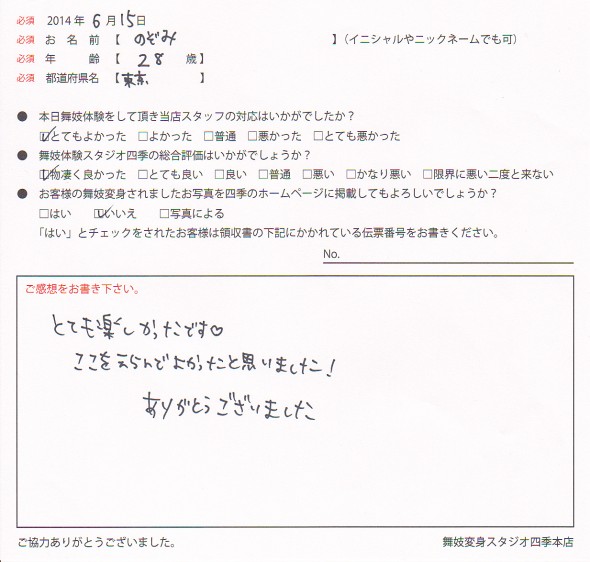 必須 2014 年 6 月 15 日
必須 お 名 前 【 のぞみ 】（イニシャルやニックネームでも可）
必須 年 齢 【 28 歳 】
必須 都道府県名 【 東京 】
● 本日舞妓体験をして頂き当店スタッフの対応はいかがでしたか？
☑とてもよかった □よかった □普通 □悪かった □とても悪かった
● 舞妓体験スタジオ四季の総合評価はいかがでしょうか？
☑物凄く良かった □とても良い □良い □普通 □悪い □かなり悪い □限界に悪い二度と来ない
● お客様の舞妓変身されましたお写真を四季のホームページに掲載してもよろしいでしょうか？
□はい ☑いいえ □写真による
「はい」とチェックをされたお客様は領収書の下記にかかれている伝票番号をお書きください。
No.
ご感想をお書き下さい。
とても楽しかったです♡
ここをえらんでよかったと思いました！
ありがとうございました
ご協力ありがとうございました。 舞妓変身スタジオ四季本店